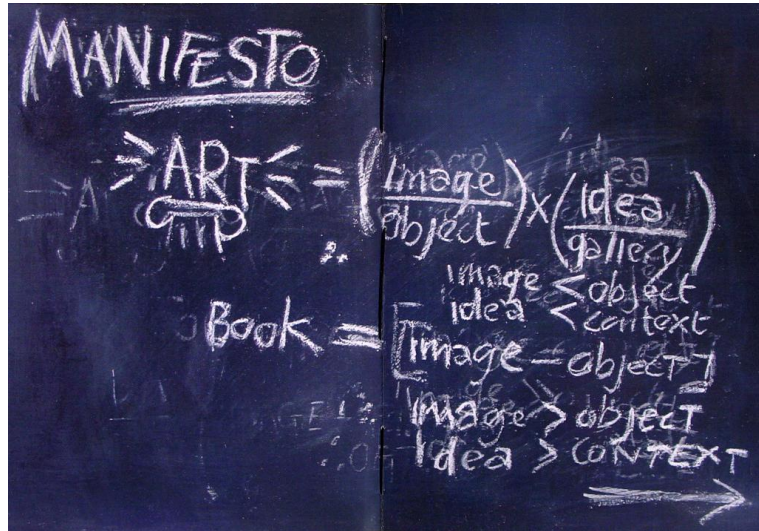 MANIFESTO
ART = (image/object) x (idea/gallery)
∴ image < object
idea < context
BOOK = [image - object]
∴ image > object
Idea > CONTEXT